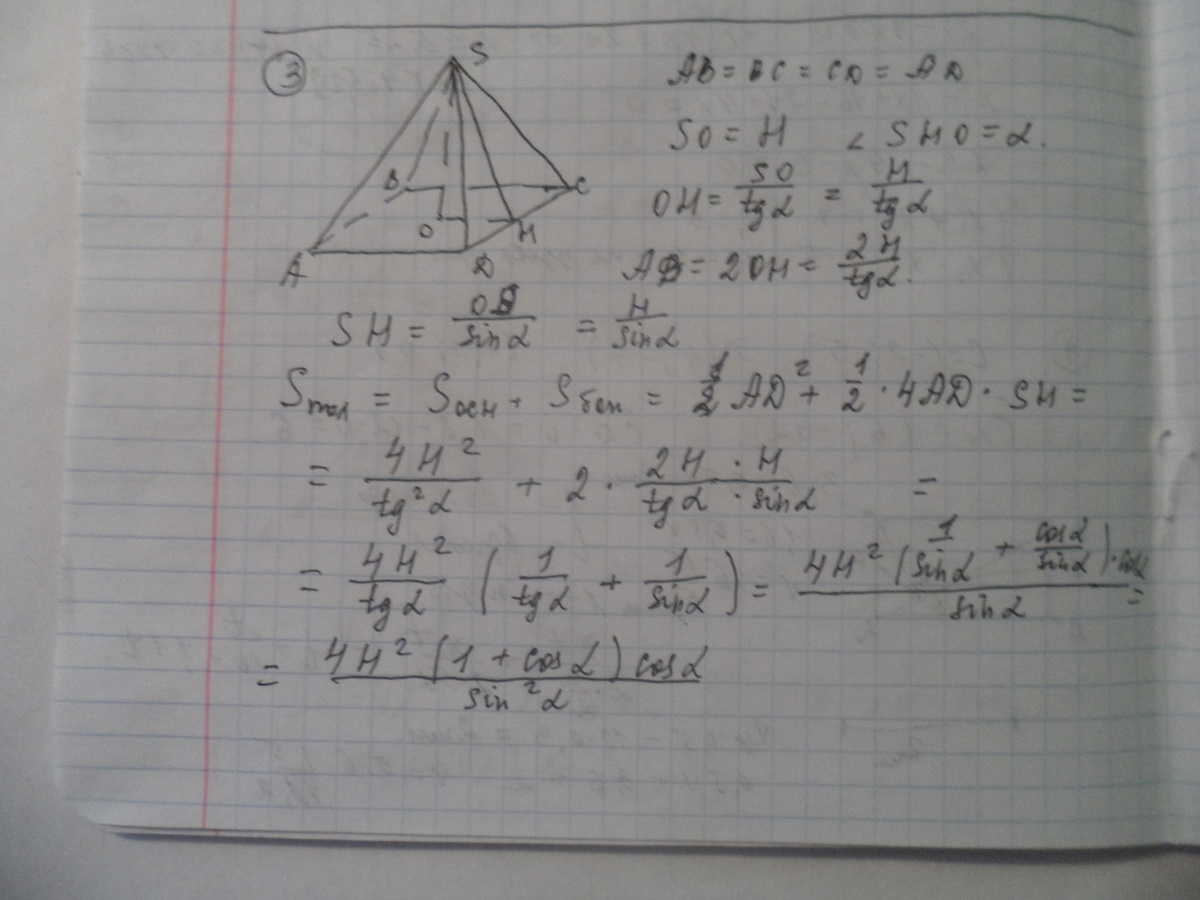 ③
S
B
C
O
H
A
D
AB = BC = CD = AD
SO = H ∠ SHO = α.
OH = SO/tgα = H/tgα
AB = 2OH = 2H/tgα.
SH = /sinα = H/sinα
Sпол = Sосн + Sбок = AD² + 1/2 · 4AD · SH =
= 4H²/tg²α + 2 · 2H · H/tgα · sinα =
= 4H²/tgα (1/tgα + 1/sinα) = 4H² (1/sinα + cosα/sinα) · cosα/sinα =
= 4H² (1 + cosα) cosα/sin²α